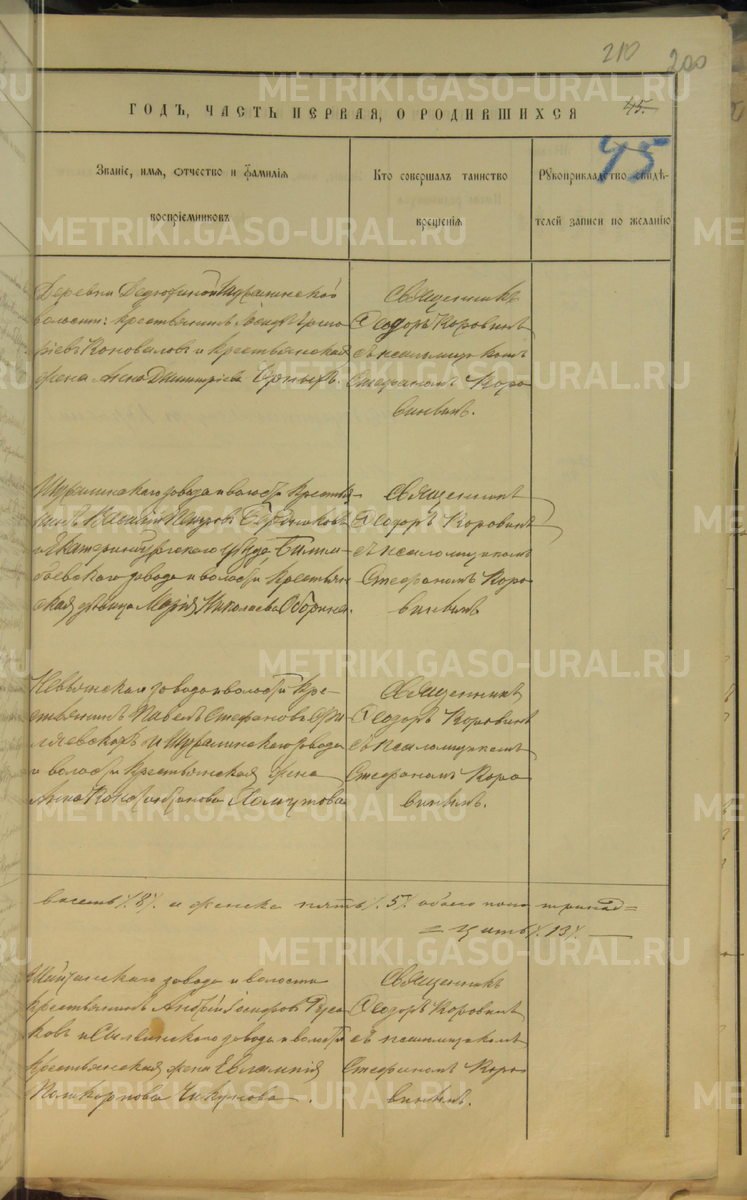 210 200
ГОДЪ, ЧАСТЬ ПЕРВАЯ, О РОДИВШИХСЯ
45.
45
Званіе, имя, отчество и фамилія
воспріемниковъ
Кто совершалъ таинство
крещенія
Рукоприкладство свидѣ-
телей записи по желанію
METRIKI.GASO-URAL.RU
Деревни Шуралинской
волости крестьянинъ Іосифъ Григо
рьевъ Коноваловъ и крестьянская
жена Анна Димитріева Черныхъ.
Священникъ
Ѳеодоръ Коровинъ
съ псаломщикомъ
Стефаномъ Коро
винымъ.
Шуралинскаго завода и волости крестья-
нинъ Петровъ Бердниковъ
и Екатеринбургскаго уѣзда Билим-
баевскаго завода и волости крестьян
ская дѣвица Марія Николаева
Священникъ
Ѳеодоръ Коровинъ
съ псаломщикомъ
Стефаномъ Коро
винымъ
Невьянскаго завода и волости кре-
стьянинъ Павелъ Стефановъ
и Шуралинскаго завода
и волости крестьянская жена
Анна Константинова Хомутова
Священникъ
Ѳеодоръ Коровинъ
съ псаломщикомъ
Стефаномъ Коро
винымъ.
восемь /.8./ и женска пять /.5./ обоего пола тринад=
=цать /.13./
Шайтанскаго завода и волости
крестьянинъ Андрей Руса
ковъ и Сылвинскаго завода и волости
крестьянская жена Евлампія
Поликарпова Чикунова.
Священникъ
Ѳеодоръ Коровинъ
съ псаломщикомъ
Стефаномъ Коро
винымъ.